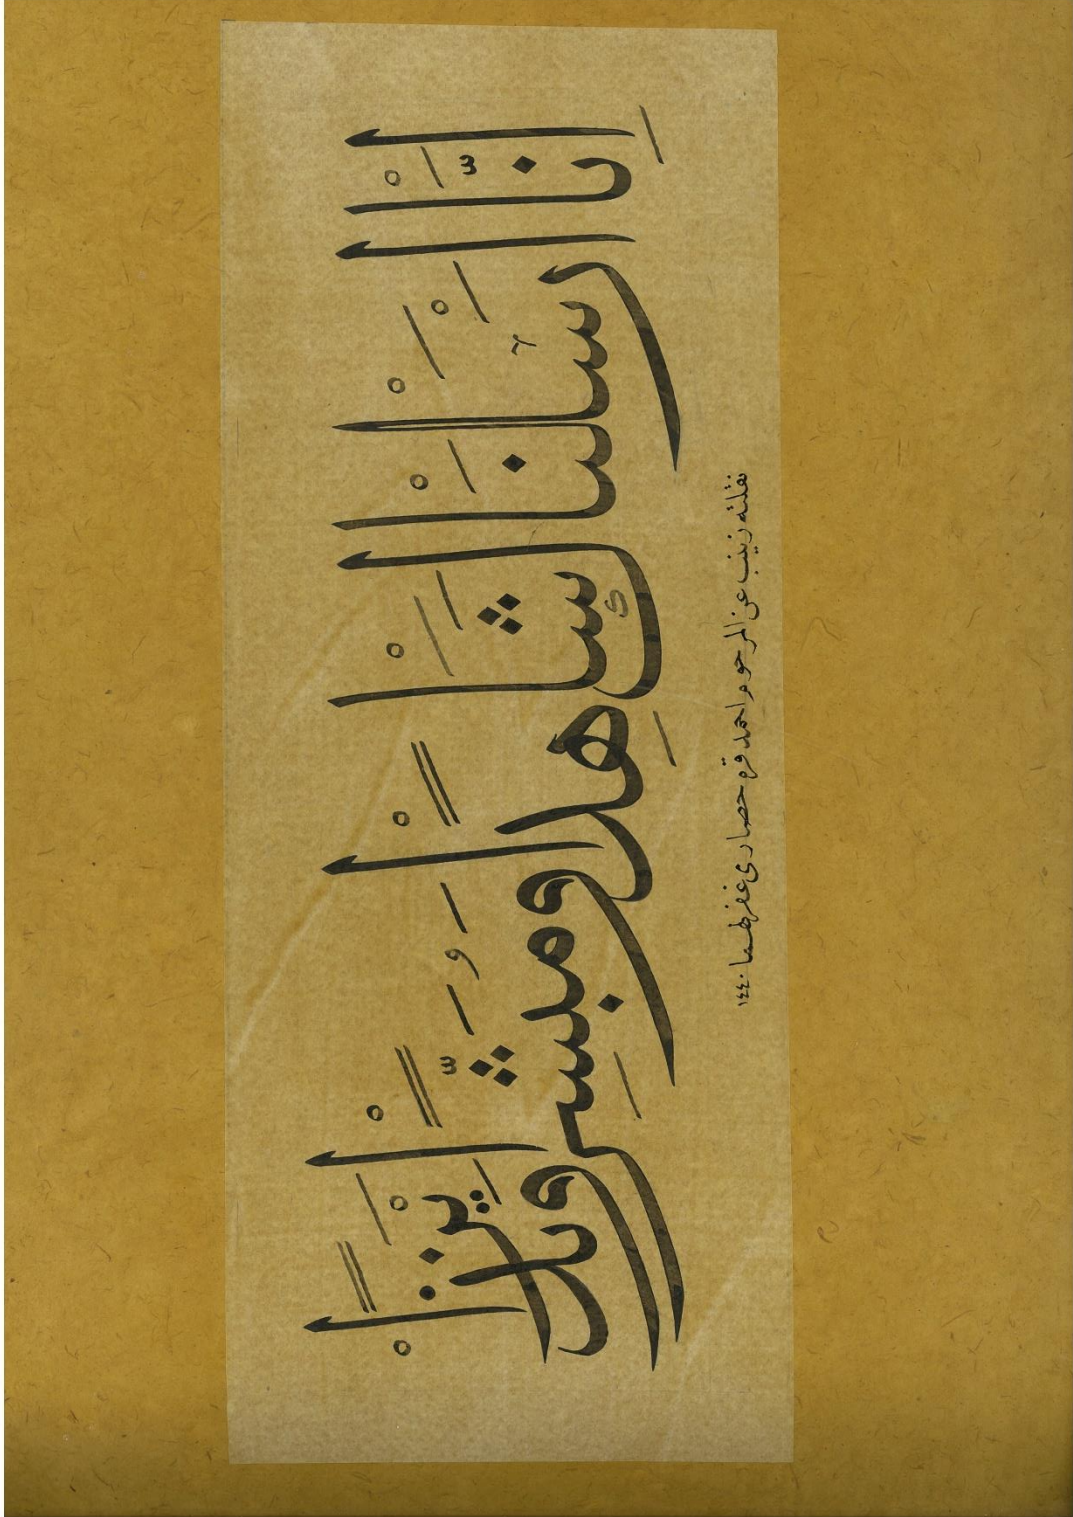 اِنَّاْ اَرْسَلْنَاْكَ شَاْهِدًاْ وَمُبَشِّرًاْ وَنَذِيْرًاْ
نقلته زينب عن المرحوم احمد قره حصاري غفر لهما ١٤٤٠